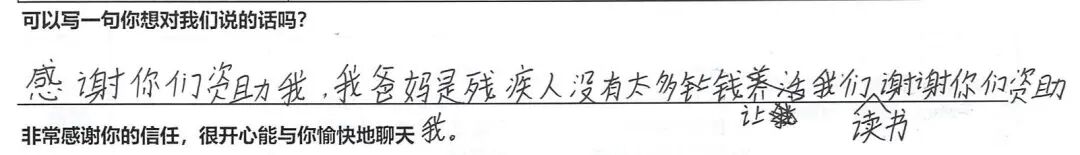 可以写一句你想对我们说的话吗？
感谢你们资助我，我爸妈是残疾人没有太多钱养活我们谢谢你们资助
让 读书
非常感谢你的信任，很开心能与你愉快地聊天 我。